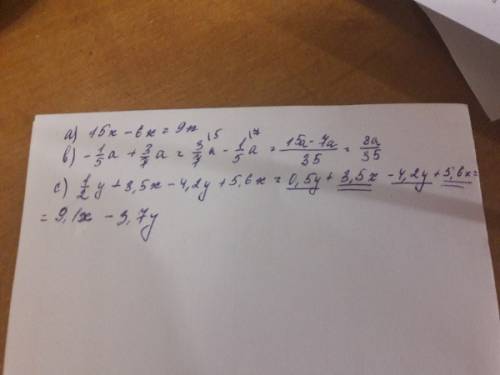 a) 15x - 6x = 9x
b) -1/5a + 3/7a = 3/7a - 1/5a = (15a - 7a)/35 = 8a/35
c) 1/2y + 3,5x - 4,2y + 5,6x = 0,5y + 3,5x - 4,2y + 5,6x =
= 9,1x - 3,7y